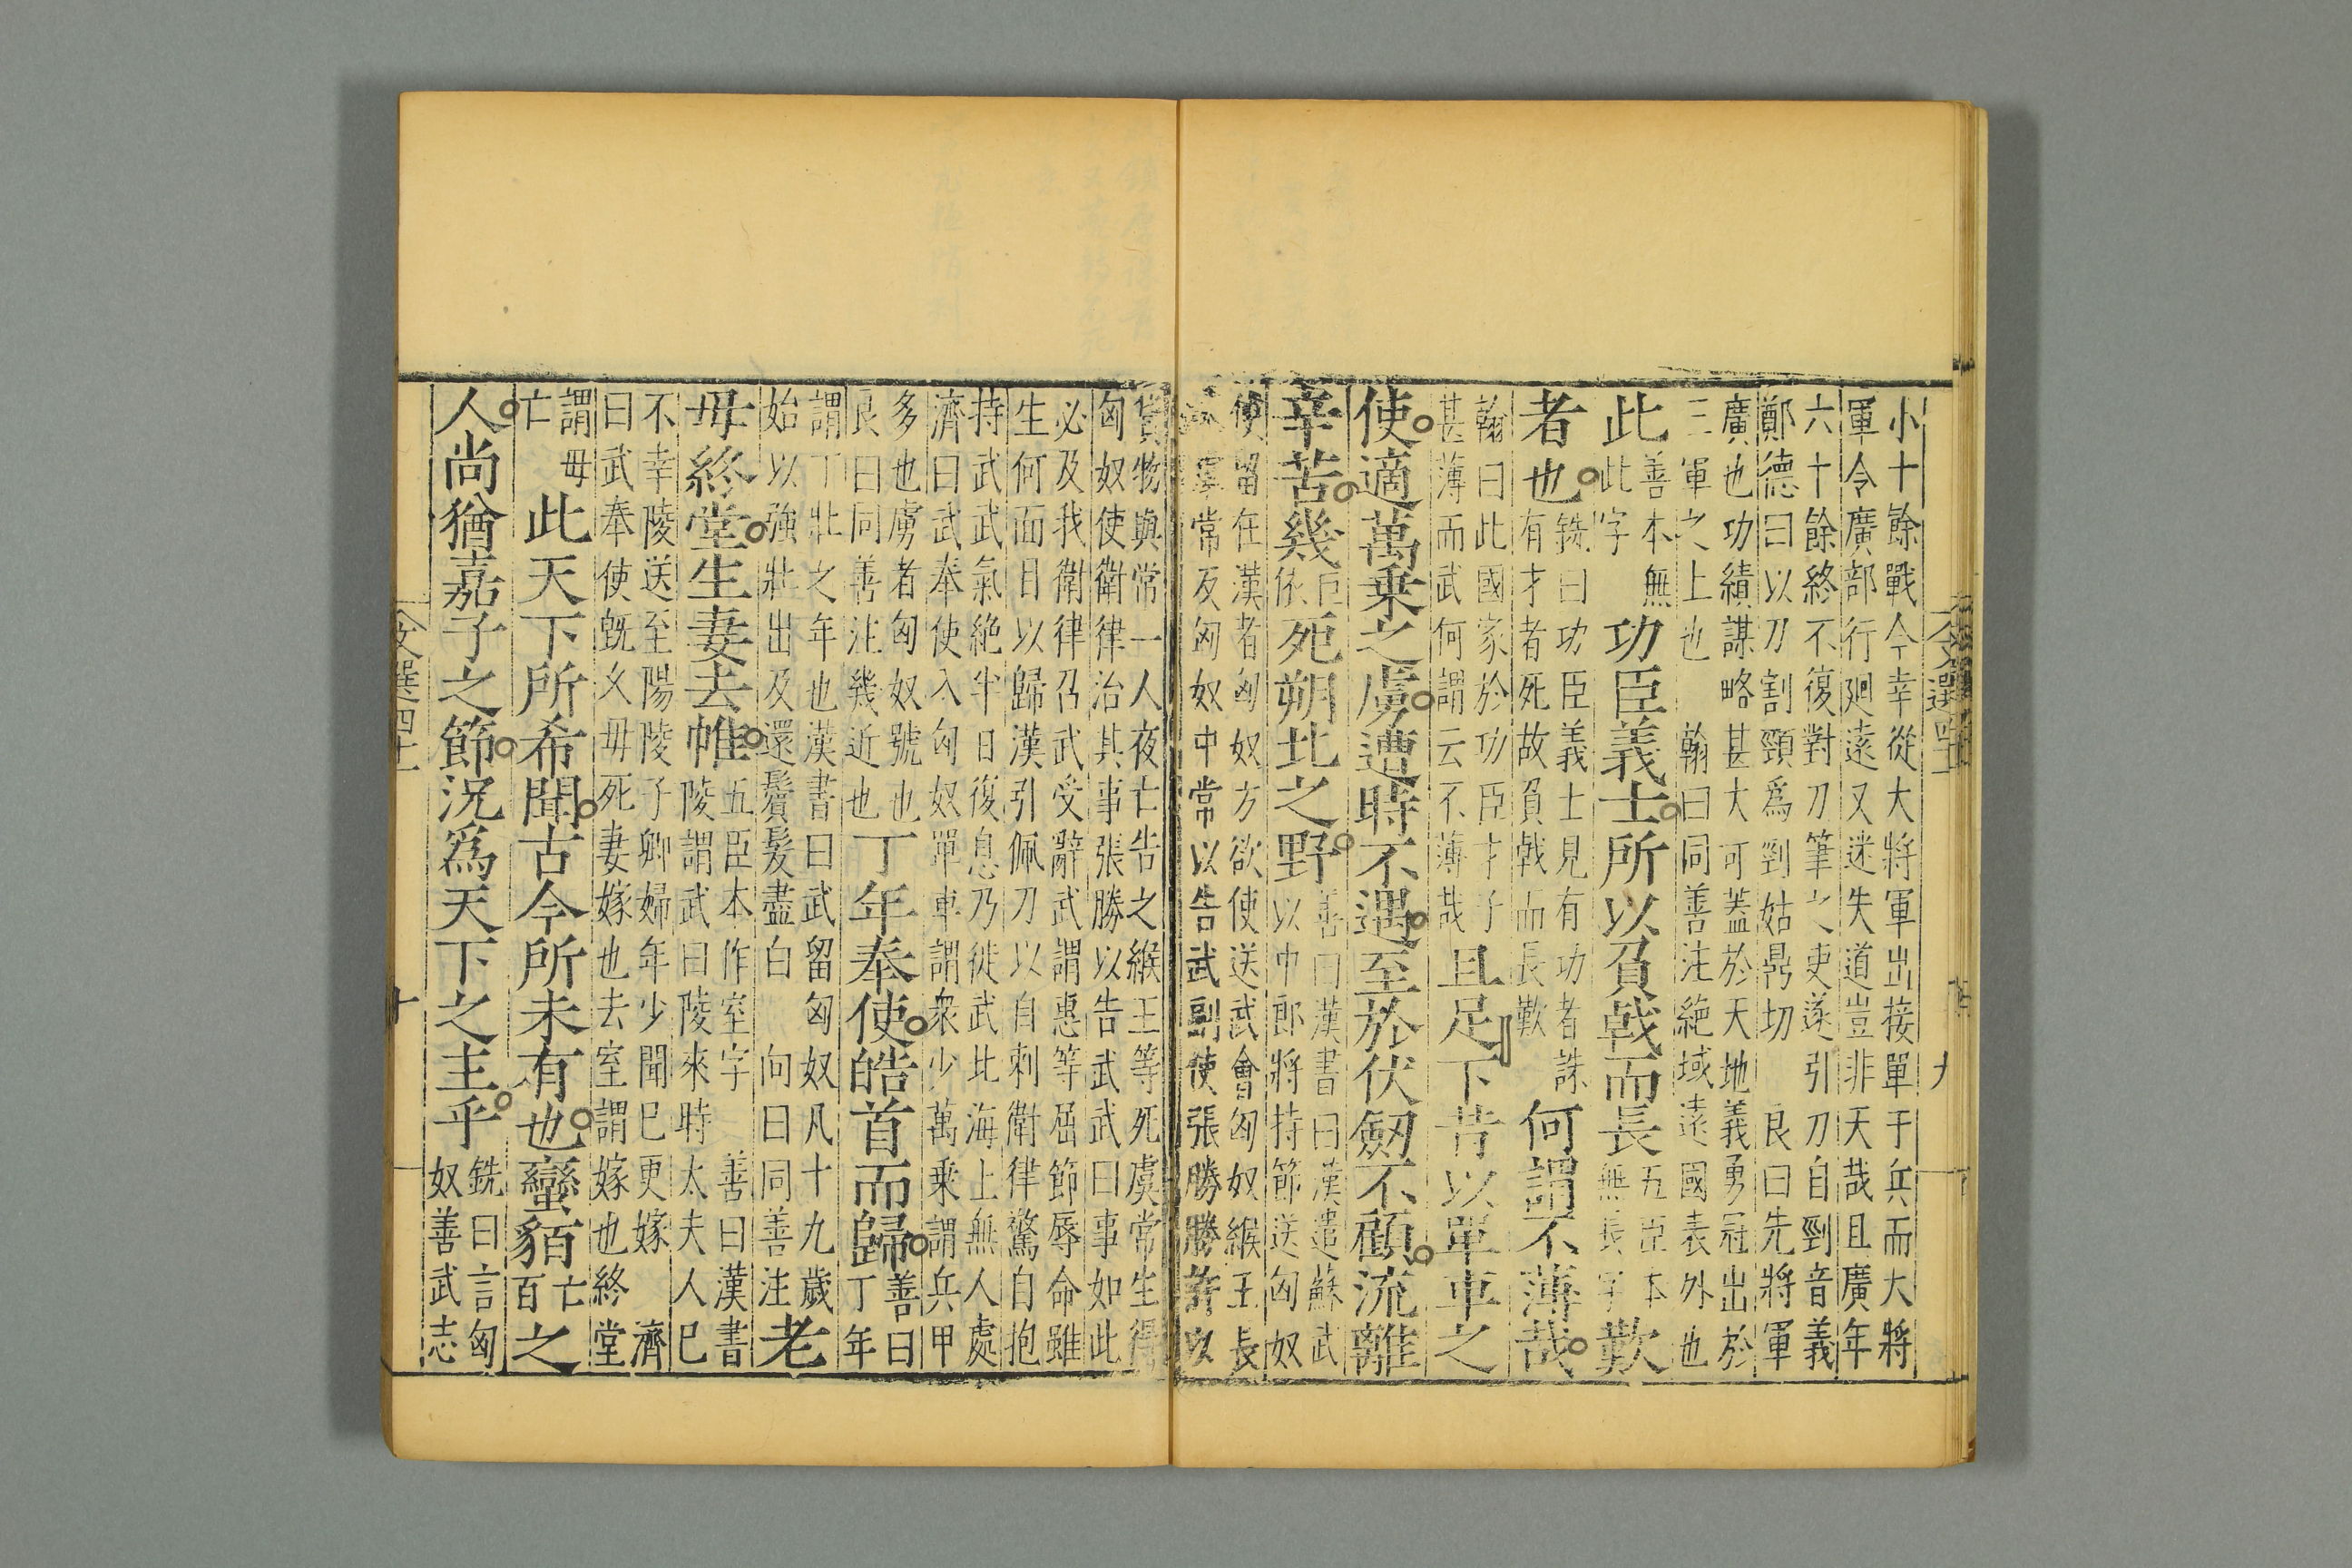 小十餘戰今幸從大將軍出接單于兵而大將
軍令廣部行廻遠又迷失道豈非天哉且廣年
六十餘終不復對刀筆之吏遂引刀自剄音義
鄭德曰以刀割頸爲剄姑鼎切 良曰先將軍
廣也功績謀略甚大可蓋於天地義勇冠出於
三軍之上也 翰曰同善注絶域遠國表外也
此
善本無
此字
功臣義士所以負戟而長
五臣本
無長字
歎
者也
銑曰功臣義士見有功者誅
有才者死故負戟而長歎
何謂不薄哉
翰曰此國家於功臣才子
甚薄而武何謂云不薄哉
且足下昔以單車之
使適萬乗之虜遭時不遇至於伏劒不顧流離
辛苦幾
巨
依
死朔北之野
善曰漢書曰漢遣蘇武
以中郎將持節送匈奴
使留在漢者匈奴方欲使送武會匈奴緱王長
常反匈奴中常以告武副使張勝勝許以
貨物與常一人夜亡告之緱王等死虞常生得
匈奴使衛律治其事張勝以告武武曰事如此
必及我衛律召武受辭武謂惠等屈節辱命雖
生何面目以歸漢引佩刀以自刺衛律驚自抱
持武武氣絶半日復息乃徙武北海上無人處
濟曰武奉使入匈奴單車謂衆少萬乗謂兵甲
多也虜者匈奴號也
良曰同善注幾近也
丁年奉使皓首而歸
善曰
丁年
謂丁壯之年也漢書曰武留匈奴凡十九歲
始以強壯出及還鬢髮盡白 向曰同善注
老
母終堂生妻去帷
五臣本作室字 善曰漢書
陵謂武曰陵來時太夫人已
不幸陵送至陽陵子卿婦年少聞已更嫁 濟
曰武奉使旣久母死妻嫁也去室謂嫁也終堂
謂母
亡
此天下所希聞古今所未有也蠻貊
亡
百
之
人尚猶嘉子之節況爲天下之主乎
銑曰言匈
奴善武志
文選四十一
九
文選四十一
十